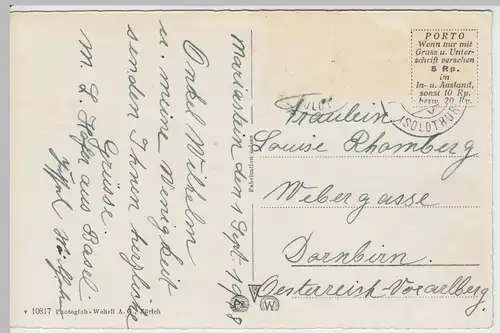 Mariastein den 1 Sept. 1948
Onkel Wilhelm
u. meine Wenigkeit
senden Ihnen herzliche
Grüsse.
M. L. Hofer aus Basel
PORTO
Wenn nur mit
Gruss u. Unter-
schrift versehen
5 Rp.
im
In- u. Ausland,
sonst 10 Rp.
bezw. 20 Rp.
(SOLOTHURN)
Fräulein
Louise Rhomberg
Webergasse
Dornbirn
Oesterreich-Vorarlberg
10817 Photoglob-Wehrli A. G., Zürich